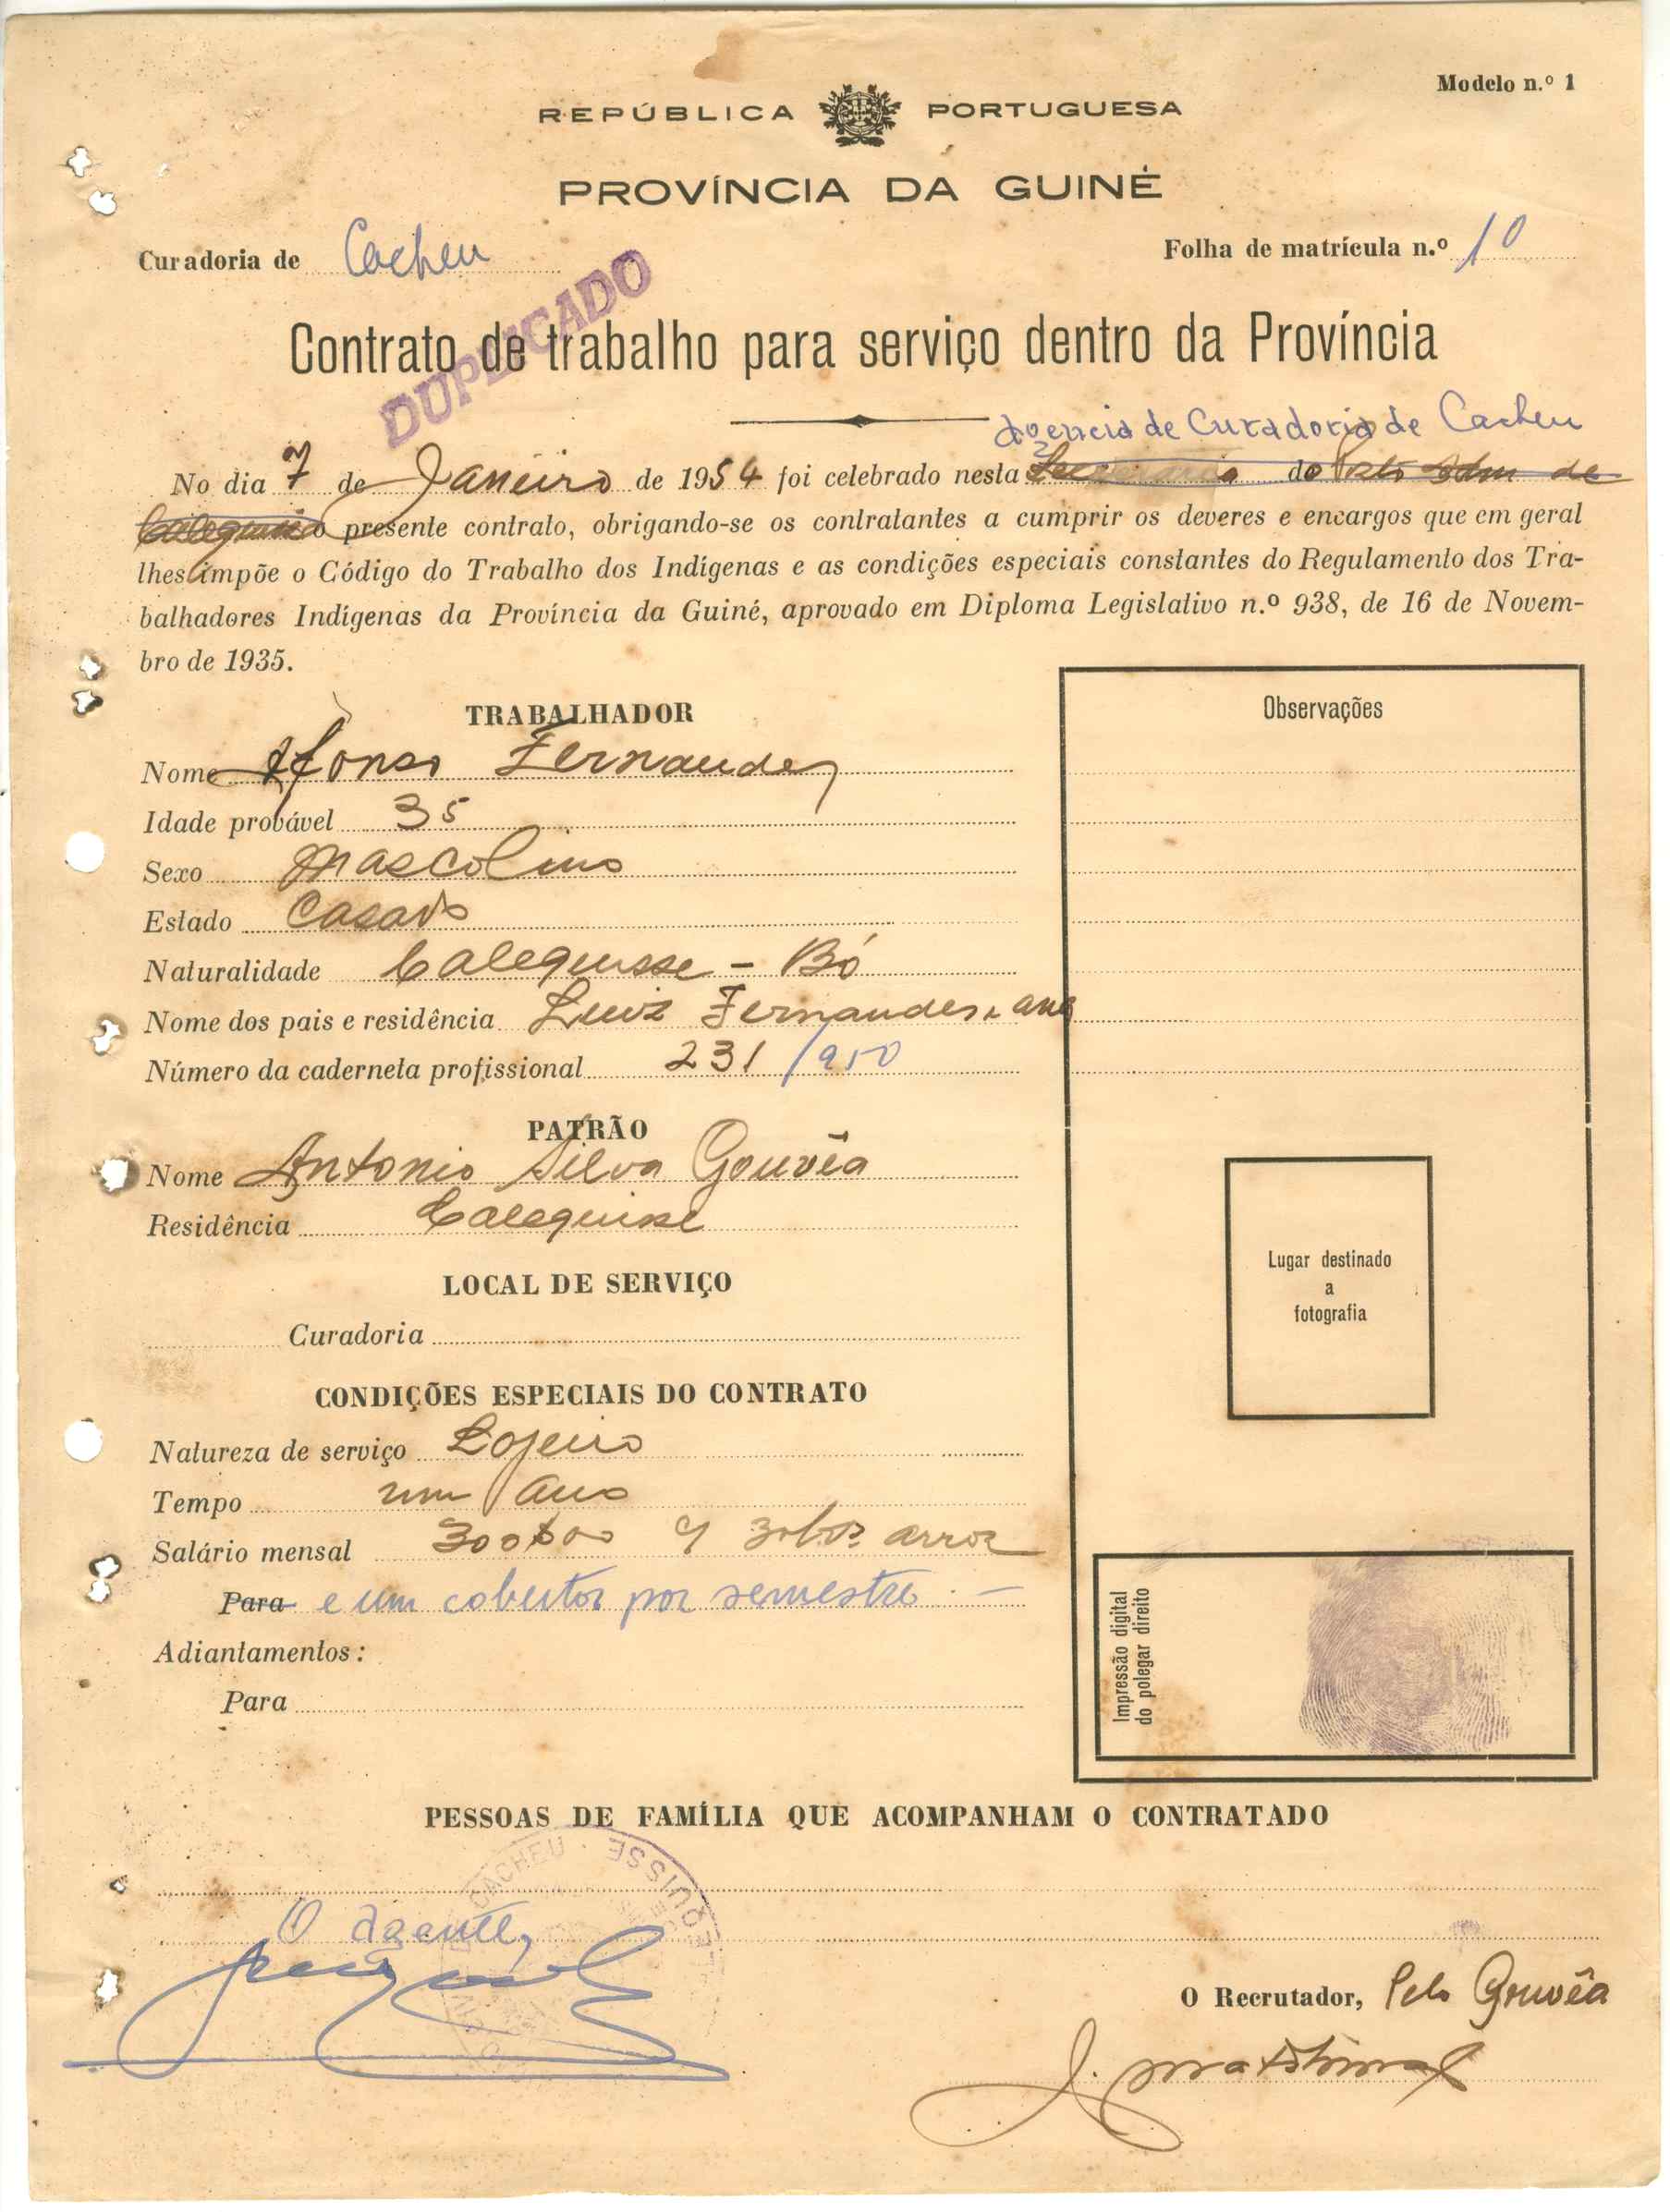 Modelo n.º 1
REPÚBLICA PORTUGUESA
PROVÍNCIA DA GUINÉ
Curadoria de Cacheu
Folha de matrícula n.º 10
DUPLICADO
Contrato de trabalho para serviço dentro da Província
Agencia de Curadoria de Cacheu
No dia 7 de Janeiro de 1954 foi celebrado nesta Secretaria do Posto Adm de
Calequisse o presente contrato, obrigando-se os contratantes a cumprir os deveres e encargos que em geral
lhes impõe o Código do Trabalho dos Indígenas e as condições especiais constantes do Regulamento dos Tra-
balhadores Indígenas da Província da Guiné, aprovado em Diploma Legislativo n.º 938, de 16 de Novem-
bro de 1935.
TRABALHADOR
Nome Afonso Fernandes
Idade provável 35
Sexo Mascolino
Estado Casado
Naturalidade Calequisse - Bó
Nome dos pais e residência Luiz Fernandes e ana
Número da caderneta profissional 231/950
Observações
PATRÃO
Nome Antonio Silva Gouvêa
Residência Calequisse
LOCAL DE SERVIÇO
Curadoria
Lugar destinado
a
fotografia
CONDIÇÕES ESPECIAIS DO CONTRATO
Natureza de serviço Lojeiro
Tempo um ano
Salário mensal 300$00 arroz
Para e um cobertor por semestre. —
Adiantamentos:
Para
Impressão digital
do polegar direito
PESSOAS DE FAMÍLIA QUE ACOMPANHAM O CONTRATADO
CACHEU
O Agente,
O Recrutador, Pelo Gouvêa